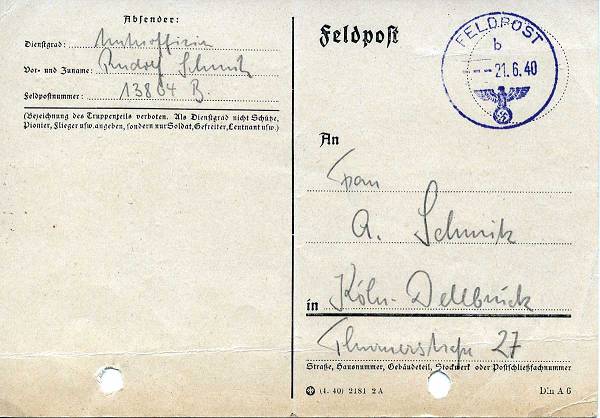 Absender:
Dienstgrad: Unteroffizier
Vor- und Zuname: Rudolf Schmitz
Feldpostnummer: 13804 B
(Bezeichnung des Truppenteils verboten. Als Dienstgrad nicht Schütze,
Pionier, Flieger usw. angeben, sondern nur Soldat, Gefreiter, Leutnant usw.)
Feldpost
FELDPOST
b
--21.6.40
An
Frau
A. Schmitz
in Köln-Dellbrück
27
Straße, Hausnummer, Gebäudeteil, Stockwerk oder Postschließfachnummer
(4. 40) 2181 2 A
Din A 6